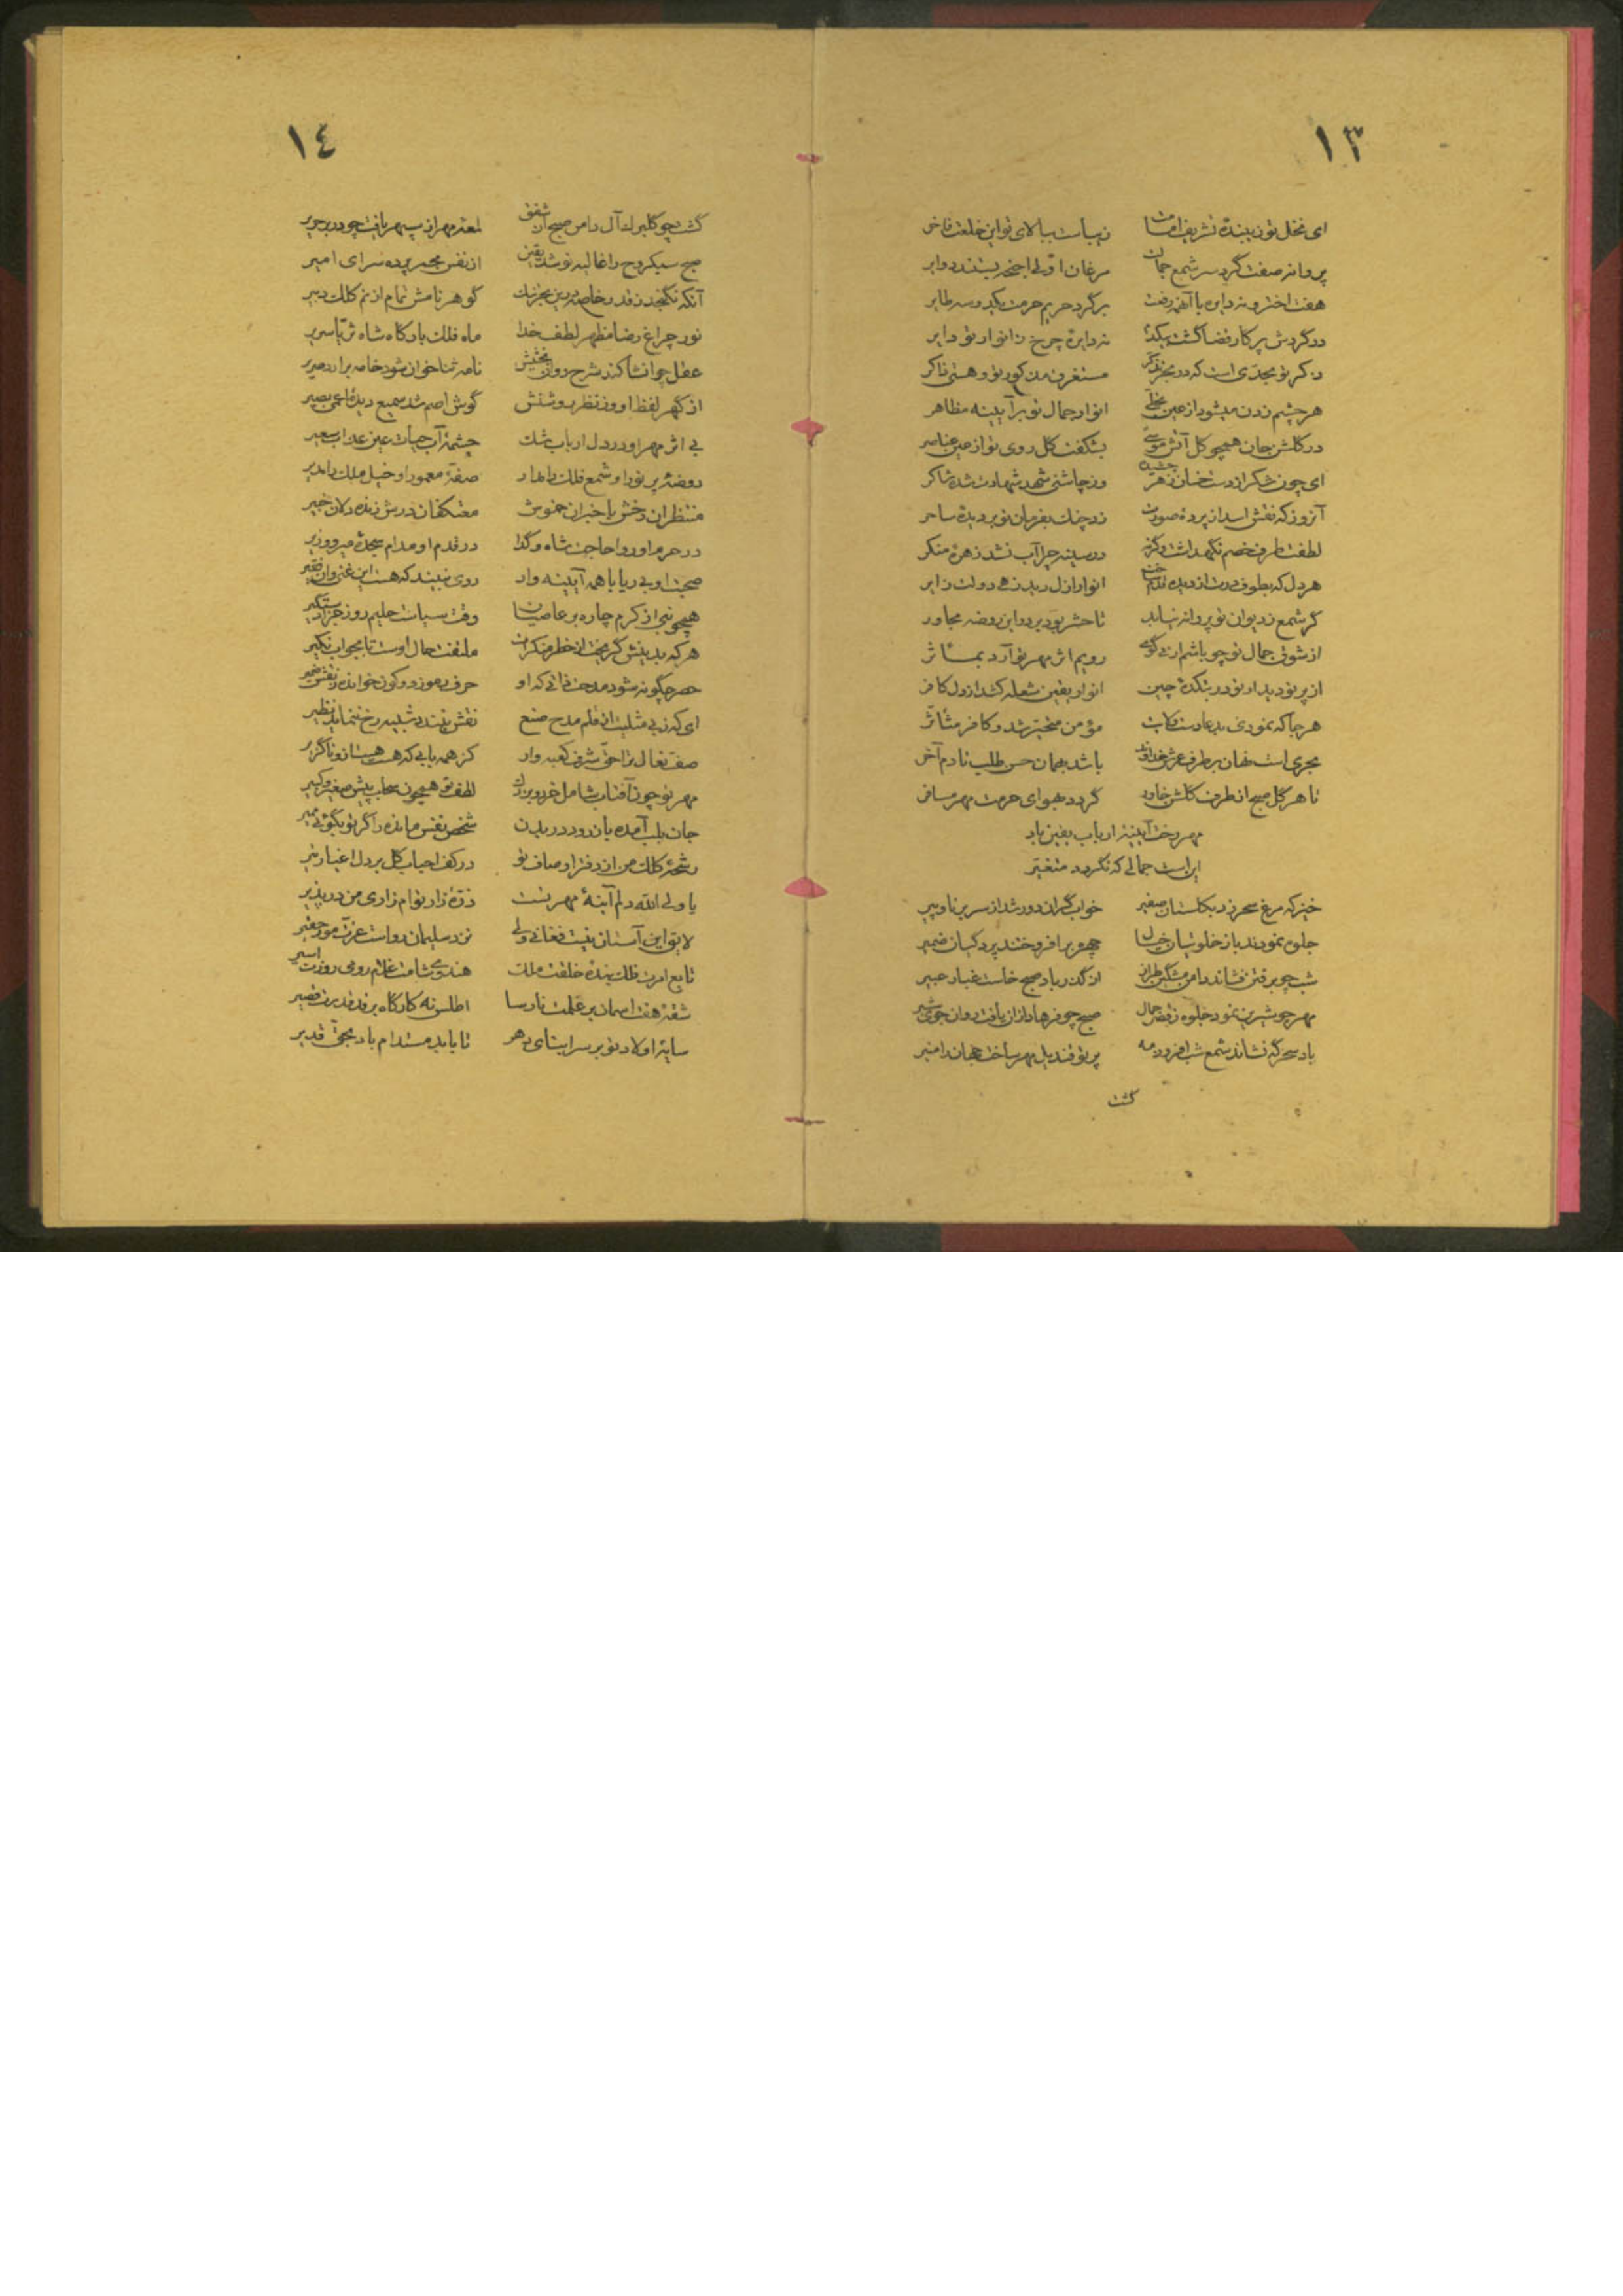 ١٣
ای نخل تو زیبنده تشریف امامت زیباست ببالای تو این خلعت فاخر
پروانه صفت گرد سر شمع جمالت مرغان اولی اجنحه بستند دوایر
هفت اختر و نه دایره با آنهمه رفعت برگرد حریم حرمت یکدوسه طایر
در گردش پرکار قضا گشت نه دایره چرخ ز انوار تو دایر
ذکر تو بحدی است که در مستغرق مذکور تو و هستی ذاکر
هر چشم زدن میشود از عین تجلی انوار جمال تو بر آیینه مظاهر
در گلشن جان همچو گل آتش موسی بشکفت گل روی تو از عین عناصر
ای چون شکر از دست خسان زهر چشیده وز چاشنی شهد شهادت شده شاکر
آنروز که نقش اسد از پرده صورت زد چنگ بفرمان تو بر دیده ساحر
لطفت طرف خصم نگهداشت وگرنه در سینه چرا آب نشد زهره منکر
هر دل که بطوف درت از دیده قدم انوار ازل دید زهی دولت زایر
گر شمع ز دیوان تو پروانه نیابد تا حشر بود بر در این روضه مجاور
از شوق جمال تو چو باشم رویم اثر مهر تو آرد بمآثر
از پرتو دیدار تو در بتکده چین انوار یقین شعله کشد از دل کافر
هر جا که نمودی ید عادت و کرامات مؤمن متحیر شد و کافر متأثر
مجری است نهان بر طرف عرش باشد بهمان حسن طلب تا دم آخر
تا هر گل صبح از طرف گلشن خاور گردد بهوای حرمت مهر مسافر
مهر رخت آیینه ارباب یقین باد
این است جمالی که نگردد متغیر
خیز که مرغ سحر زد بگلستان صفیر خواب گران دور شد از سر برنا و پیر
جلوه نمودند باز خلوتیان خیال چهره برافروختند پردگیان ضمیر
شب چو برفتن فشاند دامن مشگین طراز از گذر باد صبح خاست غبار عبیر
مهر چو شیرین نمود جلوه ز قصر جمال صبح چو فرهاد از آن یافت روان جوی شیر
باد سحرگه نشاند شمع شب افروز مه پرتو قندیل مهر ساخت جهان را منیر
گشت
١٤
گشت چو گلبرگ آل دامن صبح از شفق لمعه مهر از سپهر یافت چو در بر حریر
صبح سبکروح را غالیه نوشد یقین از نفس مجمر پرده سرای امیر
آنکه نگنجد ز قدر خاصه درین گوهر نامش تمام از نم کلک دبیر
نور چراغ رضا مظهر لطف خدا ماه فلک بارگاه شاه ثریا سریر
عقل چو انشا کند شرح روان بخشیش نامه ثنا خوان شود خامه برآرد صریر
از گهر لفظ او وز نظر روشنش گوش اصم شد سمیع دیده اعمی بصیر
بی اثر مهر او در دل ارباب شک چشمه آب حیات عین عذاب سعیر
روضه پر نور او شمع فلک را مدار صفه معمور او خیل ملک را مدیر
منتظران رخش باخبران خموش معتکفان درش زنده دلان خبیر
در حرم او روا حاجت شاه و گدا در قدم او مدام سجده میر و وزیر
صحبت او بی ریا با همه آیینه وار روی نبیند که هست این غنی و آن فقیر
همچو نبی از کرم چاره بر عاصیان وقت سیاست حلیم روز جزا دستگیر
هر که بدینش گریخت از خطر منکران ملتفت حال اوست تا بجواب نکیر
حصر چگونه شود مدحت ذاتی که او حرف رموز دو کون خوانده ز نقش ضمیر
ای که ز بی مثلیت از قلم مدح صنع نقش نبندد شبیه رخ ننماید نظیر
صف نعال ترا حق شرف کعبه داد کز همه بابی که هست هست از و ناگزیر
مهر تو چون آفتاب شامل خرد و بزرگ لطف تو همچون سحاب پیش صغیر و کبیر
جان بلب آمده باز رود در بدن شخص نفس مانده را گر تو بگوئی بمیر
رشحه کلک من از دفتر اوصاف تو در کف احباب گل بر دل اغیار تیر
یا ولی الله دلم آینه مهر تست ذره زار توام زاری من درپذیر
لایق این آستان نیست فغانی ولی نزد سلیمان رواست عزت مور حقیر
تابع امرت فلک بنده خلقت ملک هندوی شامت غلام رومی روزت اسیر
شقه هفت آسمان بر علمت نارسا اطلس نه کارگاه بر قد قدرت قصیر
سایه اولاد تو بر سر ابنای دهر تا بابد مستدام باد بحق قدیر